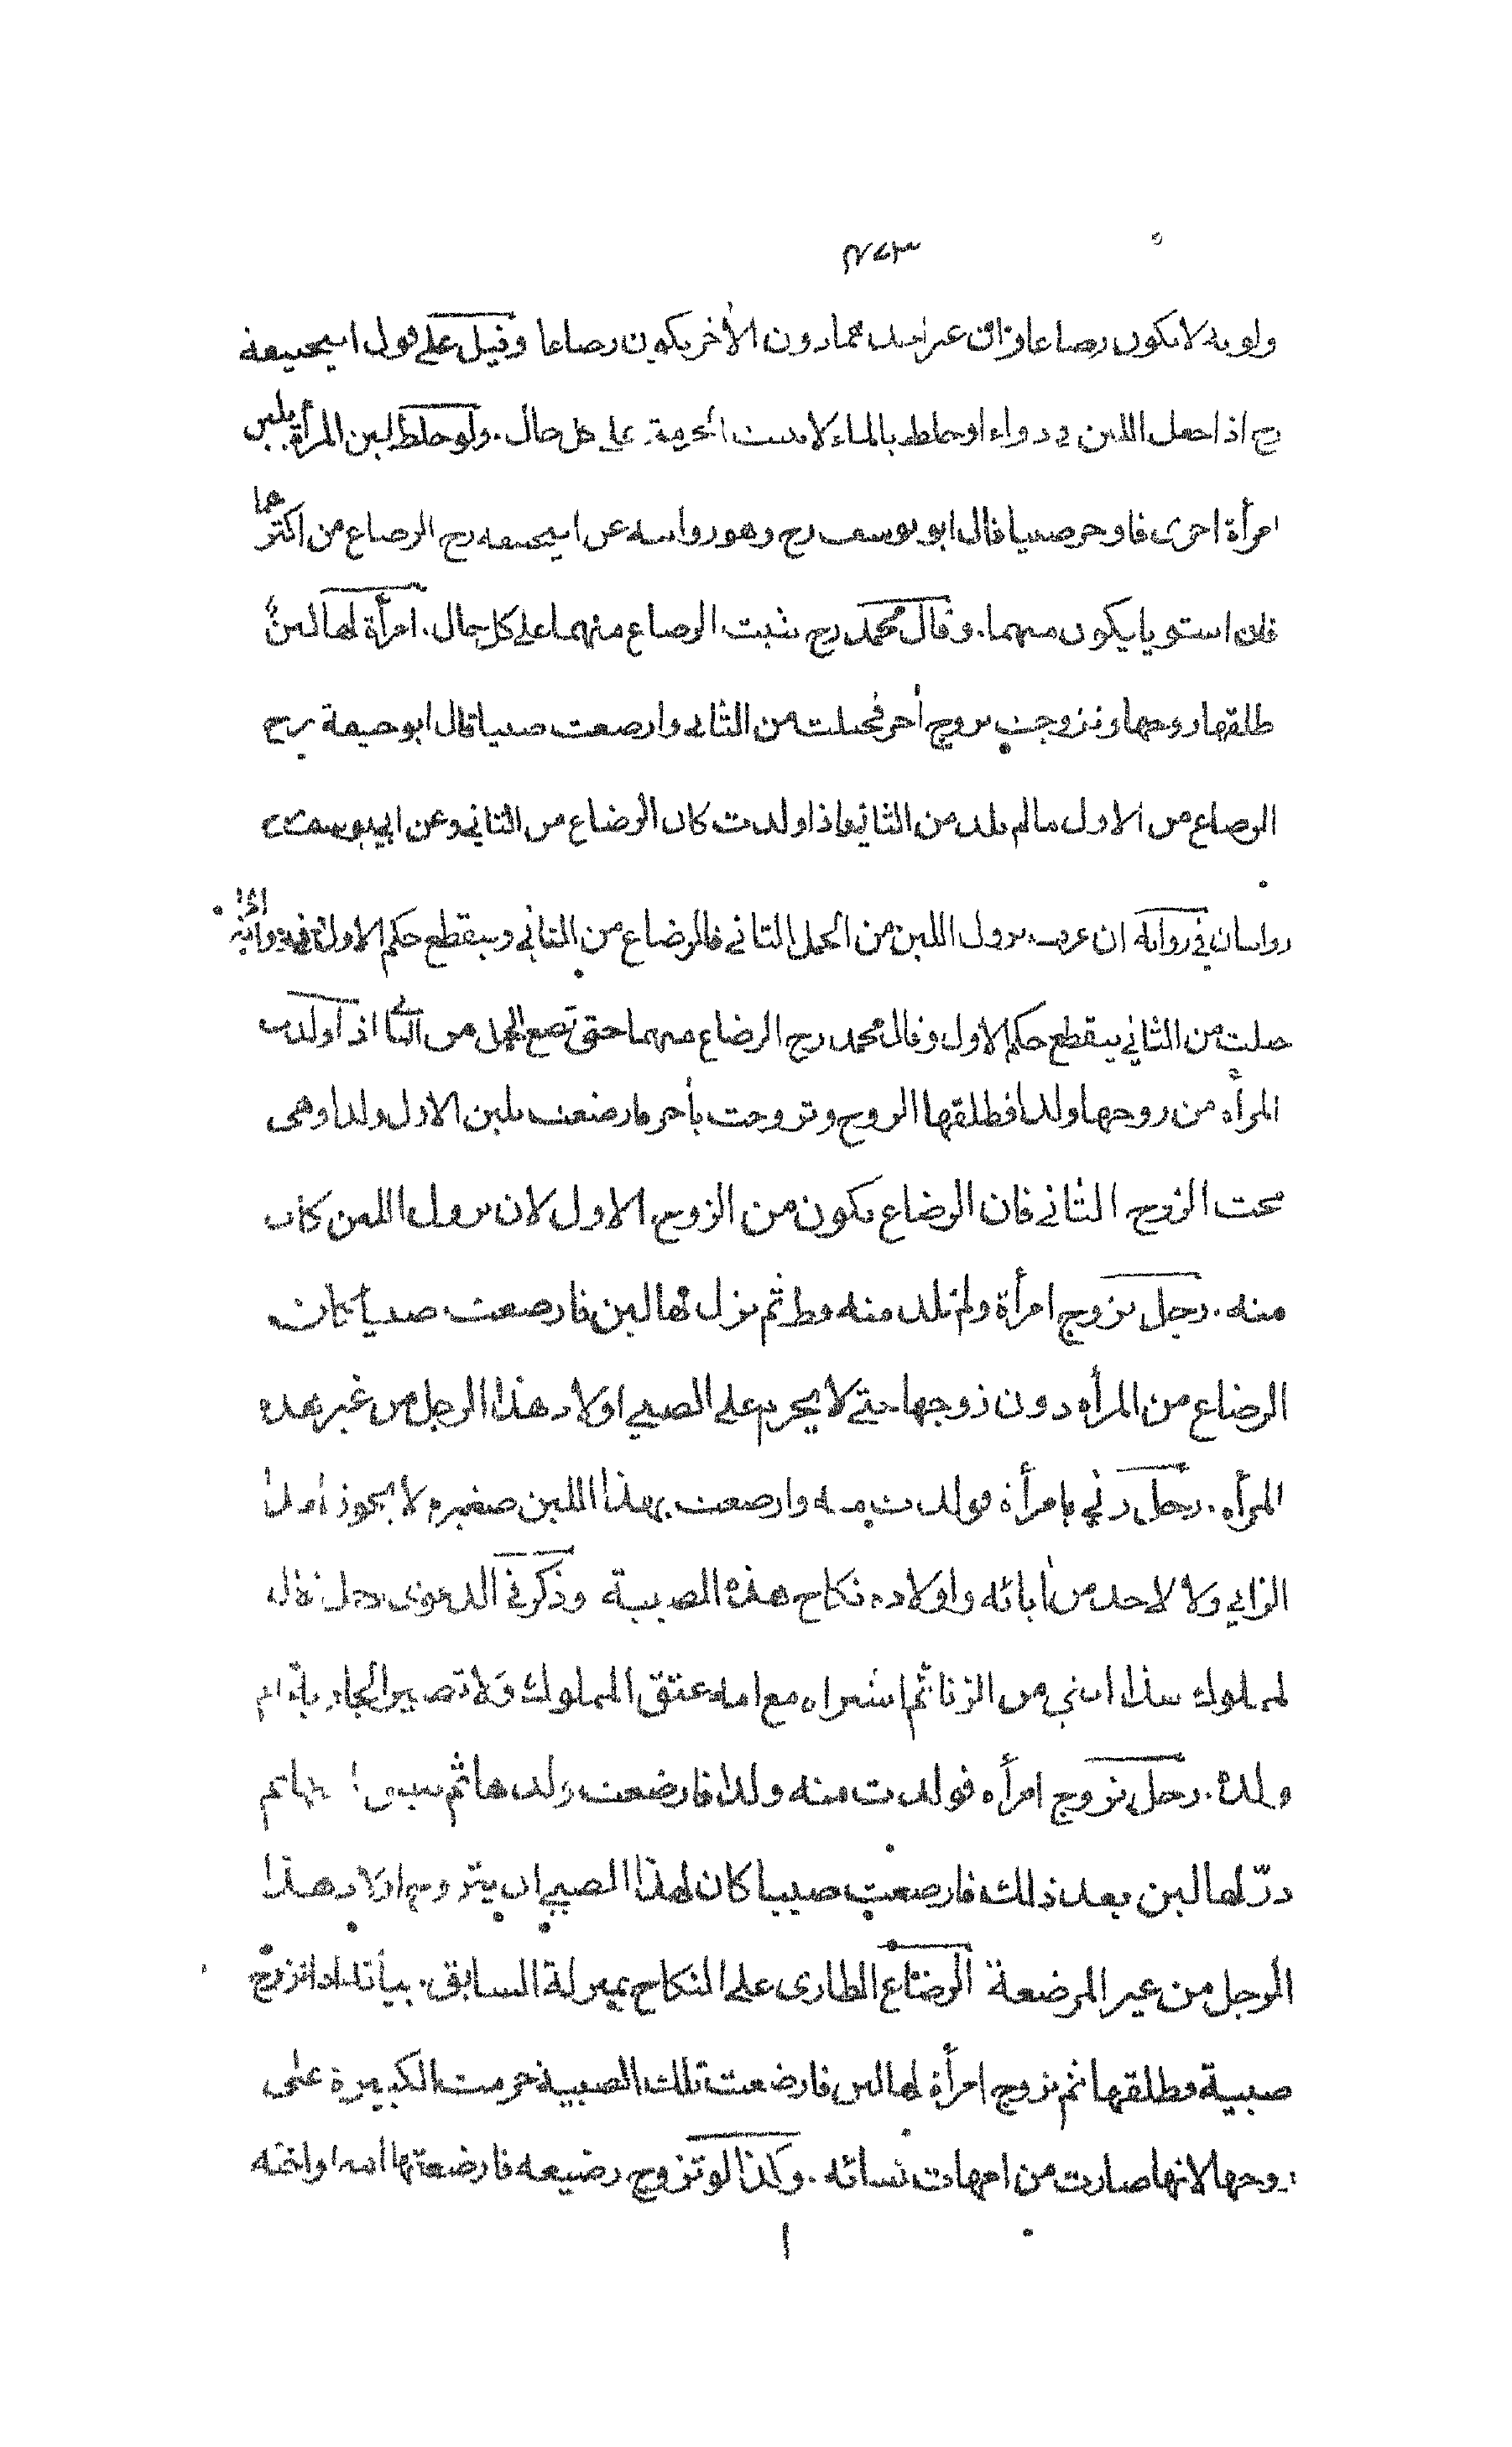 ٢٧٣
ولونه لا يكون رضاعا وان غير احدهما دون الآخر يكون رضاعا وقيل على قول ابيحنيفة
رح اذا جعل اللبن في دواء او خلط بالماء لا يثبت الحرمة على كل حال. ولو خلط لبن المرأة بلبن
امرأة اخرى فاوجر صبيا قال ابو يوسف رح وهو رواية عن ابيحنيفه رح الرضاع من اكثرهما
فان استويا يكون منهما. وقال محمد رح يثبت الرضاع منهما على كل حال. امرأة لها لبن
طلقها زوجها وتزوجت بزوج آخر فحبلت من الثاني وارضعت صبيا قال ابو حنيفة رح
الرضاع من الاول ما لم تلد من الثاني فاذا ولدت كان الرضاع من الثاني وعن ابي يوسف رح
روايتان في رواية ان عرف نزول اللبن من الحمل الثاني فالرضاع من الثاني وينقطع حكم الاول وفي رواية اذا
حبلت من الثاني ينقطع حكم الاول وقال محمد رح الرضاع منهما حتى تضع الحمل من الثاني اذا ولدت
المرأة من زوجها ولدا فطلقها الزوج وتزوجت بآخر فارضعت بلبن الاول ولدا وهى
تحت الزوج الثاني فان الرضاع يكون من الزوج الاول لان نزول اللبن كان
منه. رجل تزوج امرأة ولم تلد منه قط ثم نزل لها لبن فارضعت صبيا كان
الرضاع من المرأه دون زوجها حتى لا يحرم على الصبي اولاد هذا الرجل من غير هذه
المرأه. رجل زني بامرأة فولدت منه وارضعت بهذا اللبن صغيره لا يجوز لهذا
الزاني ولا لاحد من آبائه واولاده نكاح هذه الصبية وذكر في الدعوى رجل قال
لمملوك هذا ابني من الزنا ثم اشتراه مع امه عتق المملوك ولا تصير الجارية ام
ولده. رجل تزوج امرأه فولدت منه ولدا فارضعت ولدها ثم يبس لبنها ثم
درّ لها لبن بعد ذلك فارضعت صبيا كان لهذا الصبي ان يتزوج اولاد هذا
الرجل من غير المرضعة الرضاع الطارى على النكاح بمنزلة السابق. بيانه اذا تزوج
صبية فطلقها ثم تزوج امرأة لها لبن فارضعت تلك الصبية حرمت الكبيرة على
زوجها لانها صارت من امهات نسائه. وكذا لو تزوج رضيعه فارضعتها امه او اخته